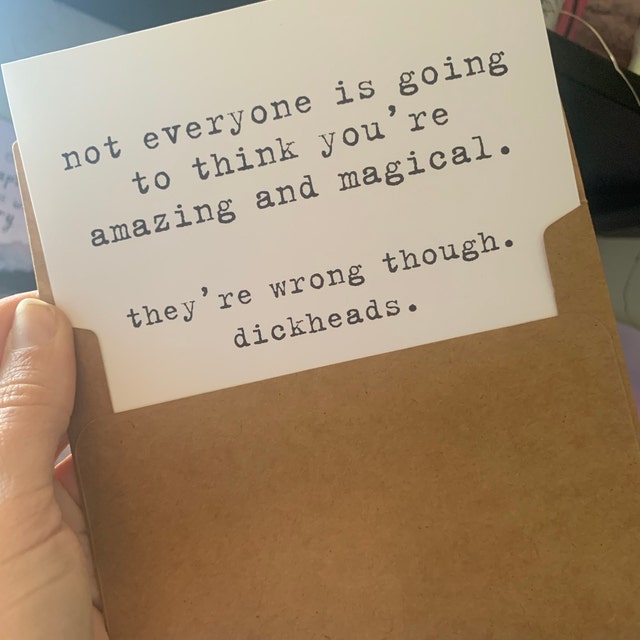 not everyone is going
to think you're
amazing and magical.
they're wrong though.
dickheads.